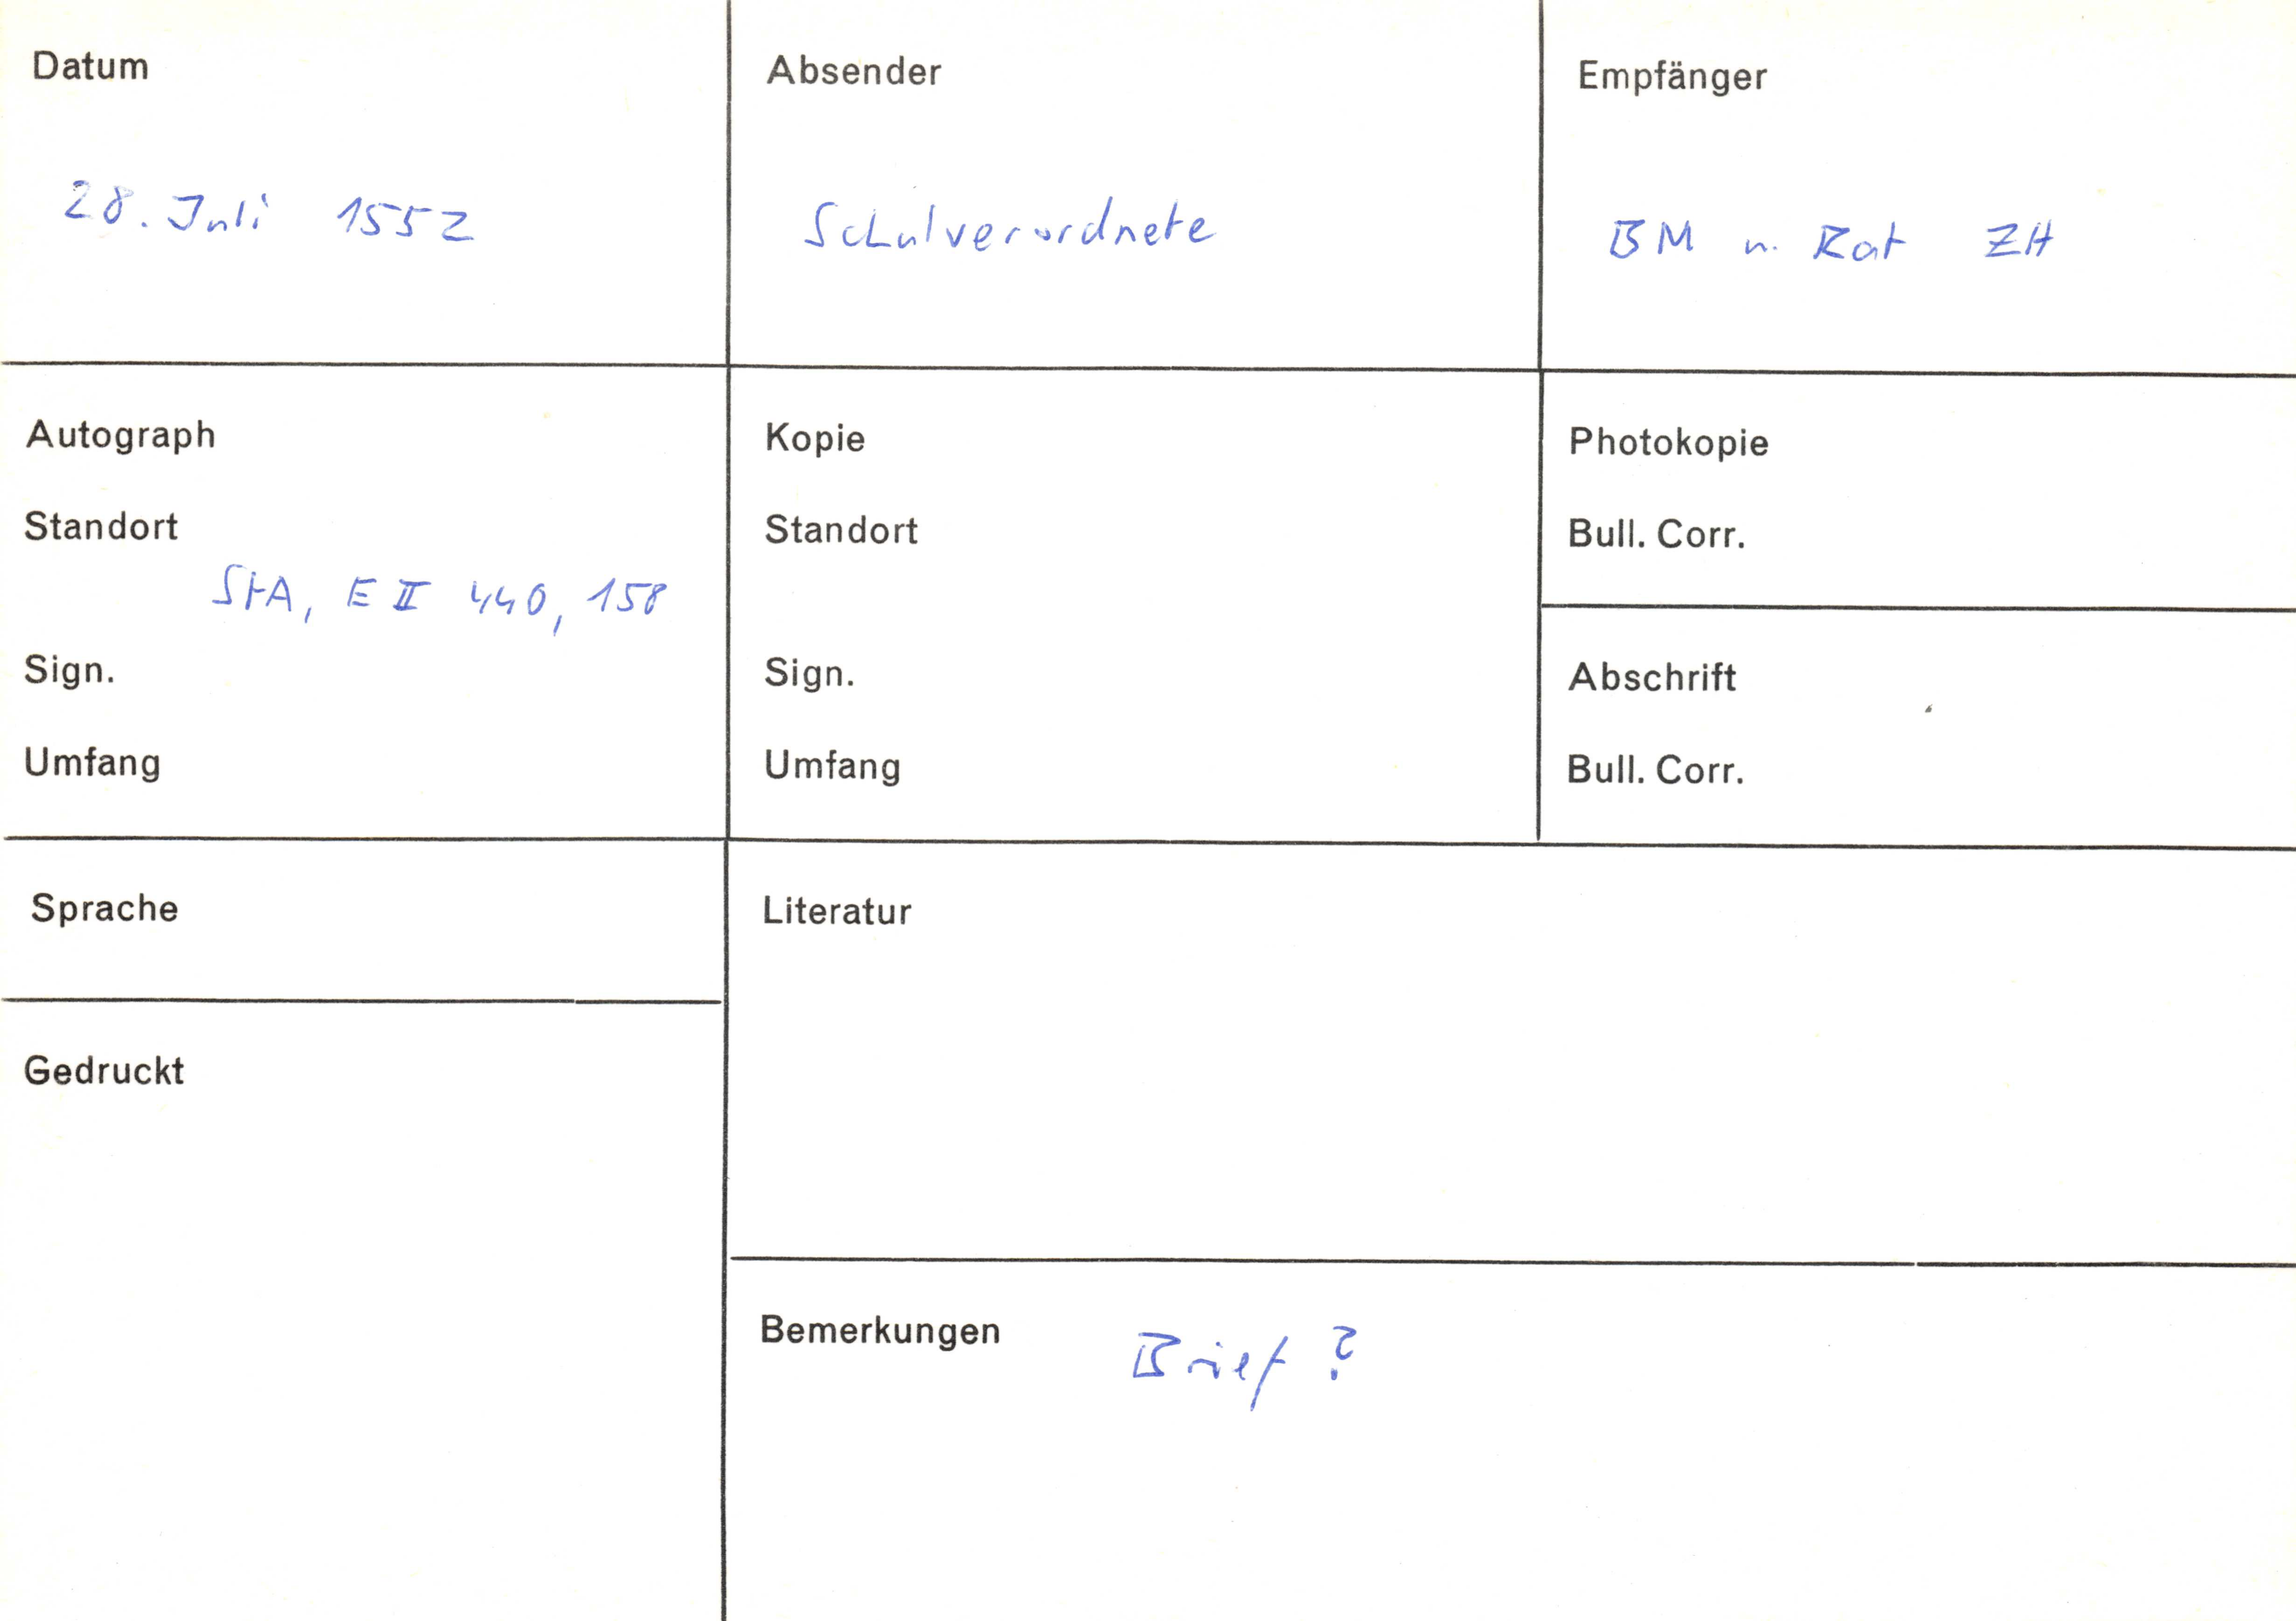 Datum
28. Juli 1552
Absender
Schulverordnete
Empfänger
BM u. Rat ZH
Autograph
Standort
StA, E II 440, 158
Sign.
Umfang
Kopie
Standort
Sign.
Umfang
Photokopie
Bull. Corr.
Abschrift
Bull. Corr.
Sprache
Gedruckt
Literatur
Bemerkungen Brief ?